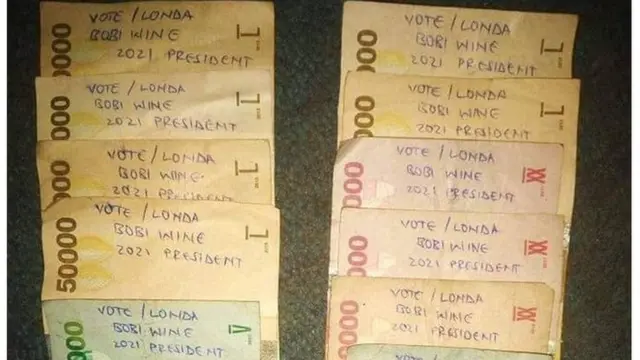 VOTE / LONDA
BOBI WINE
2021 PRESIDENT
50000
VOTE / LONDA
BOBI WINE
2021 PRESIDENT
000
VOTE / LONDA
BOBI WINE.
2021 PRESIDENT
000
VOTE / LONDA
BOBI WINE
2021 PRESIDENT
50000
VOTE / LONDA
BOBI WINE
2021 PRESIDENT
000
V
VOTE / LONDA
BOBI WINE
2021 PRESIDENT
0000
VOTE / LONDA
BOBI WINE
2021 PRESIDENT
000
VOTE / LONDA
BOBI WINE
2021 PRESIDENT
000
XX
VOTE / LONDA
BOBI WINE
2021 PRESIDENT
000
XX
VOTE / LONDA
BOBI WINE
2021 PRESIDENT
0000
XX
VOTE / LONDA